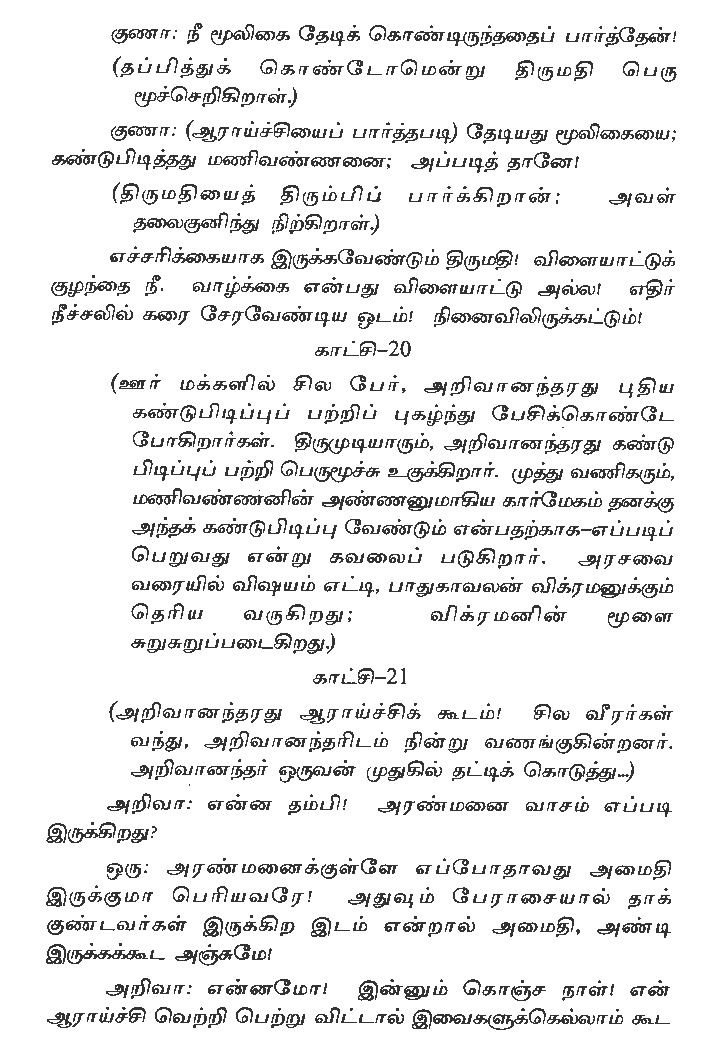 குணா: நீ மூலிகை தேடிக் கொண்டிருந்ததைப் பார்த்தேன்!
(தப்பித்துக் கொண்டோமென்று திருமதி பெரு
மூச்செறிகிறாள்.)
குணா: (ஆராய்ச்சியைப் பார்த்தபடி) தேடியது மூலிகையை;
கண்டுபிடித்தது மணிவண்ணனை; அப்படித் தானே!
(திருமதியைத் திரும்பிப் பார்க்கிறான்; அவள்
தலைகுனிந்து நிற்கிறாள்.)
எச்சரிக்கையாக இருக்கவேண்டும் திருமதி! விளையாட்டுக்
குழந்தை நீ. வாழ்க்கை என்பது விளையாட்டு அல்ல! எதிர்
நீச்சலில் கரை சேரவேண்டிய ஒடம்! நினைவிலிருக்கட்டும்!
காட்சி–20
(ஊர் மக்களில் சில பேர், அறிவானந்தரது புதிய
கண்டுபிடிப்புப் பற்றிப் புகழ்ந்து பேசிக்கொண்டே
போகிறார்கள். திருமுடியாரும், அறிவானந்தரது கண்டு
பிடிப்புப் பற்றி பெருமூச்சு உகுக்கிறார். முத்து வணிகரும்,
மணிவண்ணனின் அண்ணனுமாகிய கார்மேகம் தனக்கு
அந்தக் கண்டுபிடிப்பு வேண்டும் என்பதற்காக–எப்படிப்
பெறுவது என்று கவலைப் படுகிறார். அரசவை
வரையில் விஷயம் எட்டி, பாதுகாவலன் விக்ரமனுக்கும்
தெரிய வருகிறது; விக்ரமனின் மூளை
சுறுசுறுப்படைகிறது.)
காட்சி–21
(அறிவானந்தரது ஆராய்ச்சிக் கூடம்! சில வீரர்கள்
வந்து, அறிவானந்தரிடம் நின்று வணங்குகின்றனர்.
அறிவானந்தர் ஒருவன் முதுகில் தட்டிக் கொடுத்து...)
அறிவா: என்ன தம்பி! அரண்மனை வாசம் எப்படி
இருக்கிறது?
ஒரு: அரண்மனைக்குள்ளே எப்போதாவது அமைதி
இருக்குமா பெரியவரே! அதுவும் பேராசையால் தாக்
குண்டவர்கள் இருக்கிற இடம் என்றால் அமைதி, அண்டி
இருக்கக்கூட அஞ்சுமே!
அறிவா: என்னமோ! இன்னும் கொஞ்ச நாள்! என்
ஆராய்ச்சி வெற்றி பெற்று விட்டால் இவைகளுக்கெல்லாம் கூட